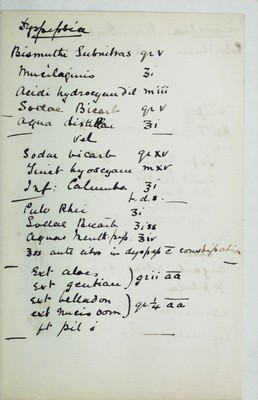 Dyspepsia
Bismuthi Subnitras gr V
Mucilaginis ʒi
Acidi hydrocyan Dil miii
Sodae Bicarb gr V
Aqua distillai ʒi
Vel
Sodae bicarb gr XV
Tinct hyoscyam mXV
Inf: Calumba ʒi
t.d.s.
Pulv Rhei ʒi
Sodae Bicarb ʒiss
Aquae Menth: pip. ℥iv
ʒss ante cibos in dyspep c̄ constipation
Ext aloes
Ext gentian ) gr ii āā
Ext belladon
ext nucis vom ) gr ¼ āā
ft pil i